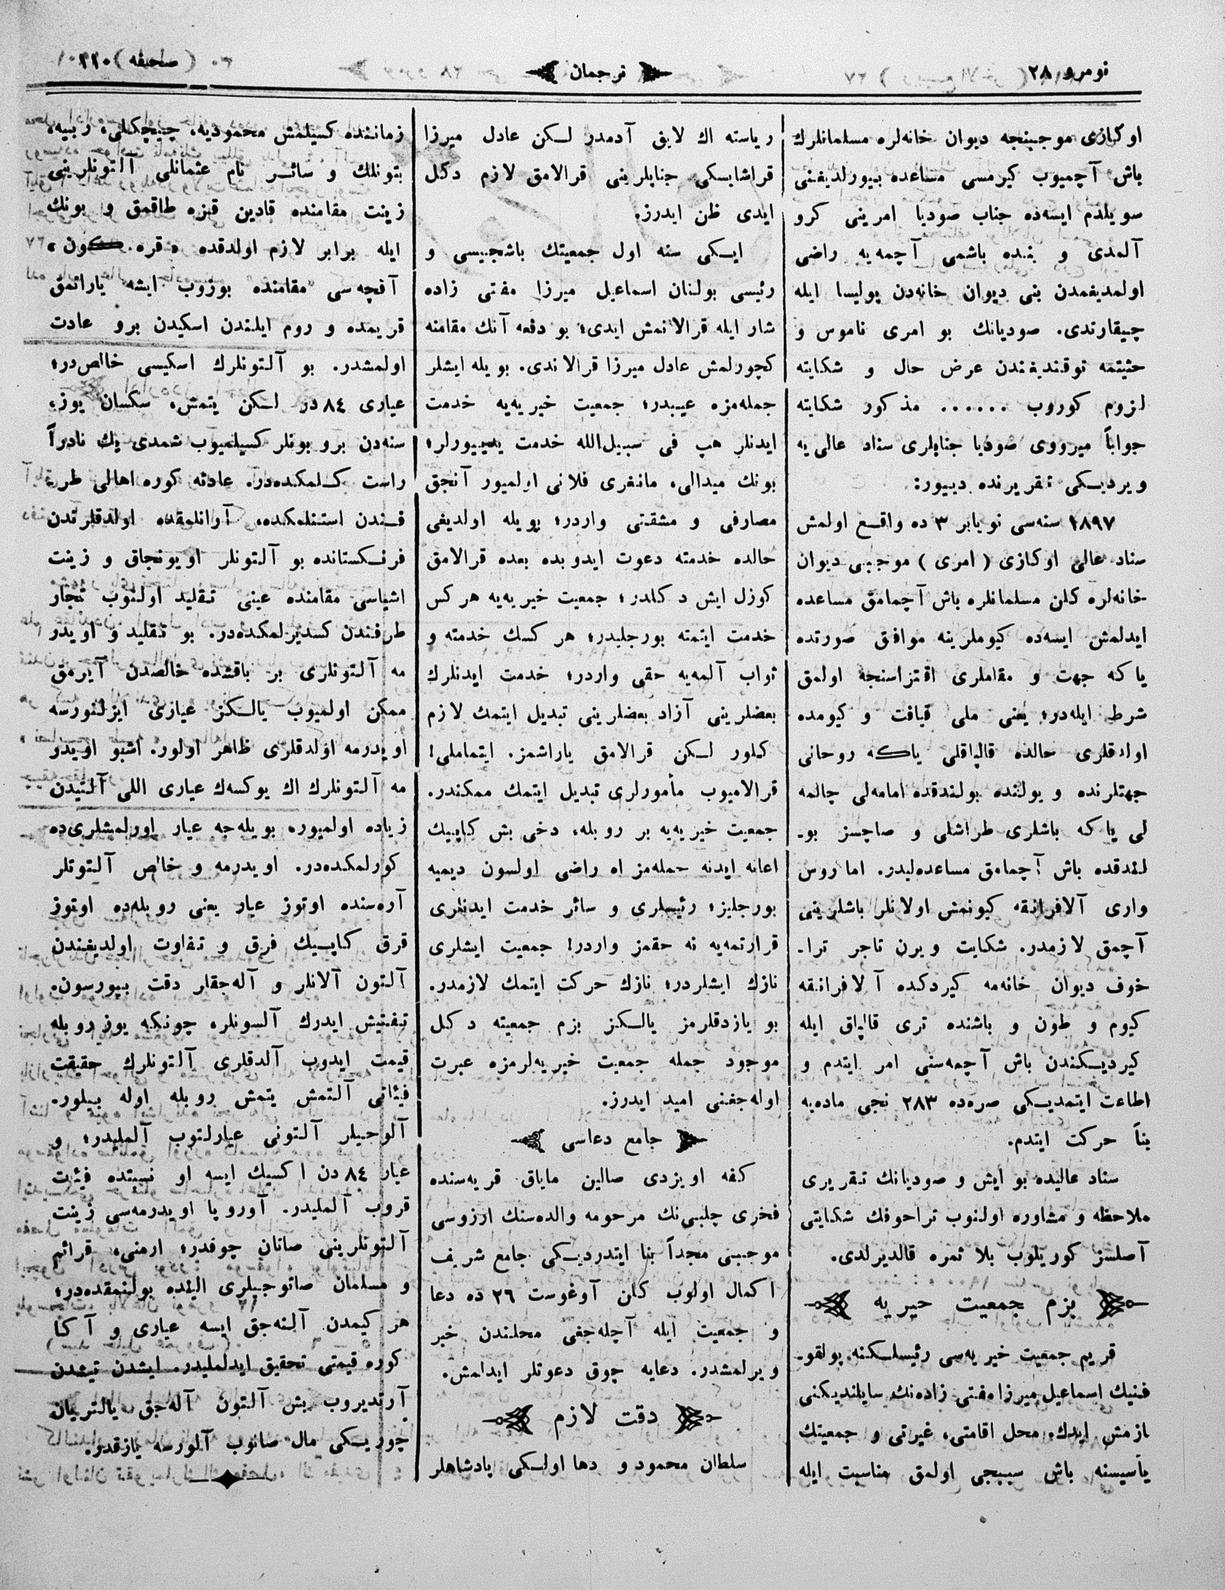 نومرو ٢٨
ترجمان
( صاحيفه ) ١١٠
اوكازى موجبنجه ديوان خانه‌لره مسلمانلرك
باش آچميوب كيرمسى مساعده بيورلديغنى
سويلدم ايسه‌ده جناب صوديا امرينى كرو
آلمدى و بنده باشمى آچمه‌يه راضى
اولمديغمدن بنى ديوان خانه‌دن پوليسا ايله
چيقارتدى. صوديانك بو امرى ناموس و
حثيتمه توقنديغندن عرض حال و شكايته
لزوم كوروب ...... مذكور شكايته
جواباً ميرووى صوديا جنابلرى سناد عالى‌يه
ويرديكى تقريرنده ديبور:
١٨٩٧ سنه‌سى نويابر ٣ ده واقع اولمش
سناد عالى اوكازى ( امرى ) موجبى ديوان
خانه‌لره كلن مسلمانلره باش آچمامق مساعده
ايدلمش ايسه‌ده كيوملرينه موافق صورتده
ياكه جهت و مقاملرى اقتزاسنجه اولمق
شرط ايله‌در؛ يعنى ملى قيافت و كيومده
اولدقلرى حالده قالپاقلى ياكه روحانى
جهتلرنده و يولنده بولندقده امامه‌لى چالمه
لى ياكه باشلرى طراشلى و صاچسز بو-
لندقده باش آچمامق مساعده‌ليدر. اما روس
وارى آلافرانقه كيونمش اولانلر باشلرينى
آچمق لازمدر. شكايت ويرن تاجر ترا-
خوف ديوان خانه‌مه كيردكده آلافرانقه
كيوم و طون و باشنده ترى قالپاق ايله
كيرديكندن باش آچمه‌سنى امر ايتدم و
اطاعت ايتمديكى صره‌ده ٢٨٣ نجى ماده‌يه
بناً حركت ايتدم.
سناد عاليده بو ايش و صوديانك تقريرى
ملاحظه و مشاوره اولنوب تراحوفك شكايتى
آصلسز كوريلوب بلا ثمره قالديرلدى.
بزم جمعيت خيريه
قريم جمعيت خيريه‌سى رئيسلكنه پولقو-
فنيك اسماعيل ميرزا مفتى زاده‌نك سايلنديكنى
يازمش ايدك. محل اقامتى، غيرتى و جمعيتك
ياسيسنه باش سببجى اولمق مناسبت ايله
رياسته اك لايق آدمدر لكن عادل ميرزا
قراشايسكى جنابلرينى قرالامق لازم دكل
ايدى ظن ايدرز.
ايكى سنه اول جمعيتك باشجيسى و
رئيسى بولنان اسماعيل ميرزا مفتى زاده
شار ايله قرالانمش ايدى؛ بو دفعه آنك مقامنه
كچورلمش عادل ميرزا قرالاندى. بويله ايشلر
جمله‌مزه عيبدر؛ جمعيت خيريه‌يه خدمت
ايدنلر هپ فى سبيل‌الله خدمت يديبيورلر؛
بونك ميدالى، مانغرى فلانى اولميور آنجق
مصارفى و مشقتى واردر؛ بويله اولديغى
حالده خدمته دعوت ايدوبده بعده قرالامق
كوزل ايش دكلدر؛ جمعيت خيريه‌يه هركس
خدمت ايتمنه بورجليدر؛ هر كسك خدمته و
ثواب آلمه‌يه حقى واردر؛ خدمت ايدنلرك
بعضلرينى آزاد بعضلرينى تبديل ايتمك لازم
كيلور لكن قرالامق ياراشمز. ايتماملى!
قرالاميوب مأمورلرى تبديل ايتمك ممكندر.
جمعيت خيريه‌يه بر روبله، دخى بش كاپيك
اعانه ايدنه جمله‌مز اه راضى اولسون ديميه
بورجليز؛ رئيسلرى و سائر خدمت ايدنلرى
قرارتمه‌يه نه حقمز واردر! جمعيت ايشلرى
نازك ايشلردر؛ نازك حركت ايتمك لازمدر.
بو يازدقلرمز يالكز بزم جمعيته دكل
موجود جمله جمعيت خيريه‌لرمزه عبرت
اوله‌جغنى اميد ايدرز.
جامع دعاسى
كفه اويزدى صالين ماياق قريه‌سنده
فخرى چلبى‌نك مرحومه والده‌سنك ارزوسى
موجبى مجدداً بنا ايتدرديكى جامع شريف
اكمال اولوب كلن آوغوست ٢٦ ده دعا
و جمعيت ايله آچله‌جغى محلندن خبر
ويرلمشدر. دعايه چوق دعوتلر ايدلمش.
دقت لازم
سلطان محمود و دها اولكى پادشاهلر
زماننده كسيلمش محموديه، چيچكلى، ربيه،
بتونلك و سائر نام عثمانلى آلتونلرينى
زينت مقامنده قادين قيزه طاقمق و بونك
ايله برابر لازم اولدقده «قره كون»
آقچه‌سى مقامنده بوزوب ايشه ياراتمق
قريمده و روم ايلندن اسكيدن برو عادت
اولمشدر. بو آلتونلرك اسكيسى خالص‌در؛
عيارى ٨٤ در لكن يتمش، سكسان يوز،
سنه‌دن برو بونلر كسيلميوب شمدى پك نادراً
راست كلمكده‌در. عادته كوره اهالى طر
فندن استنلمكده، آرانلمقده اولدقلرندن
فرنكستانده بو آلتونلر اويونجاق و زينت
اشياسى مقامنده عينى تقليد اولنوب تجار
طرفندن كسديرلمكده‌در. بو تقليد و اويدر
مه آلتونلرى بر باقشده خالصدن آيرمق
ممكن اولميوب يالكز عيارى ايزلنورسه
اويدرمه اولدقلرى ظاهر اولور. اشبو اويدر
مه آلتونلرك اك يوكسك عيارى اللى آلتيدن
زياده اولميوره بويله‌جه عيار اورلمشلرى‌ده
كورلمكده‌در. اويدرمه و خالص آلتونلر
آره‌سنده اوتوز عيار يعنى روبله‌ده اوتوز
قرق كاپيك فرق و تفاوت اولديغندن
آلتون آلانلر و آله‌جقلر دقت بيورسون.
تفتيش ايدرك آلسونلر، چونكه يوز روبله
قيمت ايدوب آلدقلرى آلتونلرك حقيقت
فيئاتى آلتمش يتمش روبله اوله بيلور.
آلوجيلر آلتونى عيارلتوب آلمليدر؛ و
عيار ٨٤ دن اكسيك ايسه او نسبتده فيئت
قروب آلمليدر. آوروپا اويدرمه‌سى زينت
آلتونلرينى صاتان چوقدر؛ ارمنى، قرائم
و مسلمان صاتوجيلرى الينده بولنمقده‌در؛
هر كيمدن آلنه‌جق ايسه عيارى و آكا
كوره قيمتى تحقيق ايدلمليدر. ايشدن تيشدن
آرتديروب بش آلتون آله‌جق يالتريان
چوريكى مال صانوب آلورسه يازقدر.